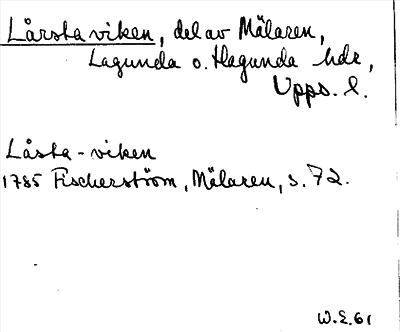 Lårstaviken, del av Mälaren,
Lagunda o. Hagunda hdr,
Upps. l.
Låsta-viken
1785 Fischerström, Mälaren, s. 72.
W.E. 61